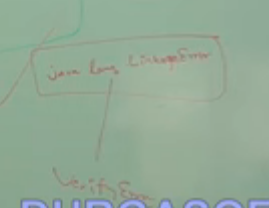 java lang LinkageError
VerifyError
DURGASOF